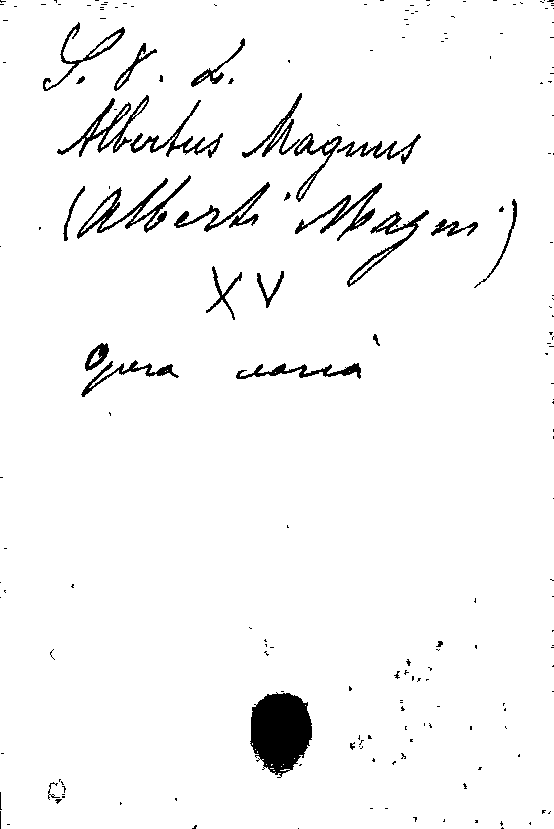 S. 8. L.
Albertus Magnus
(Alberti Magni)
XV
Opera varia